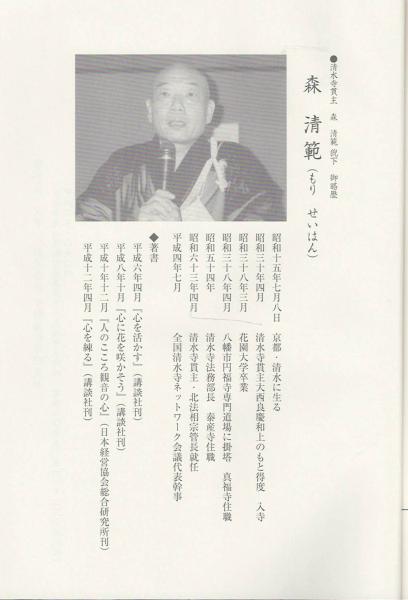 ●清水寺貫主 森 清範 猊下 御略歴
森 清範(もり せいはん)
昭和十五年七月八日 京都・清水に生る
昭和三十年四月 清水寺貫主大西良慶和上のもと得度 入寺
昭和三十八年三月 花園大学卒業
昭和三十八年四月 八幡市円福寺専門道場に掛塔 真福寺住職
昭和五十四年 清水寺法務部長 泰産寺住職
昭和六十三年四月 清水寺貫主・北法相宗管長就任
平成四年七月 全国清水寺ネットワーク会議代表幹事
◆著書
平成六年四月『心を活かす』(講談社刊)
平成八年十月『心に花を咲かそう』(講談社刊)
平成十年十二月『人のこころ観音の心』(日本経営協会総合研究所刊)
平成十二年四月『心を練る』(講談社刊)